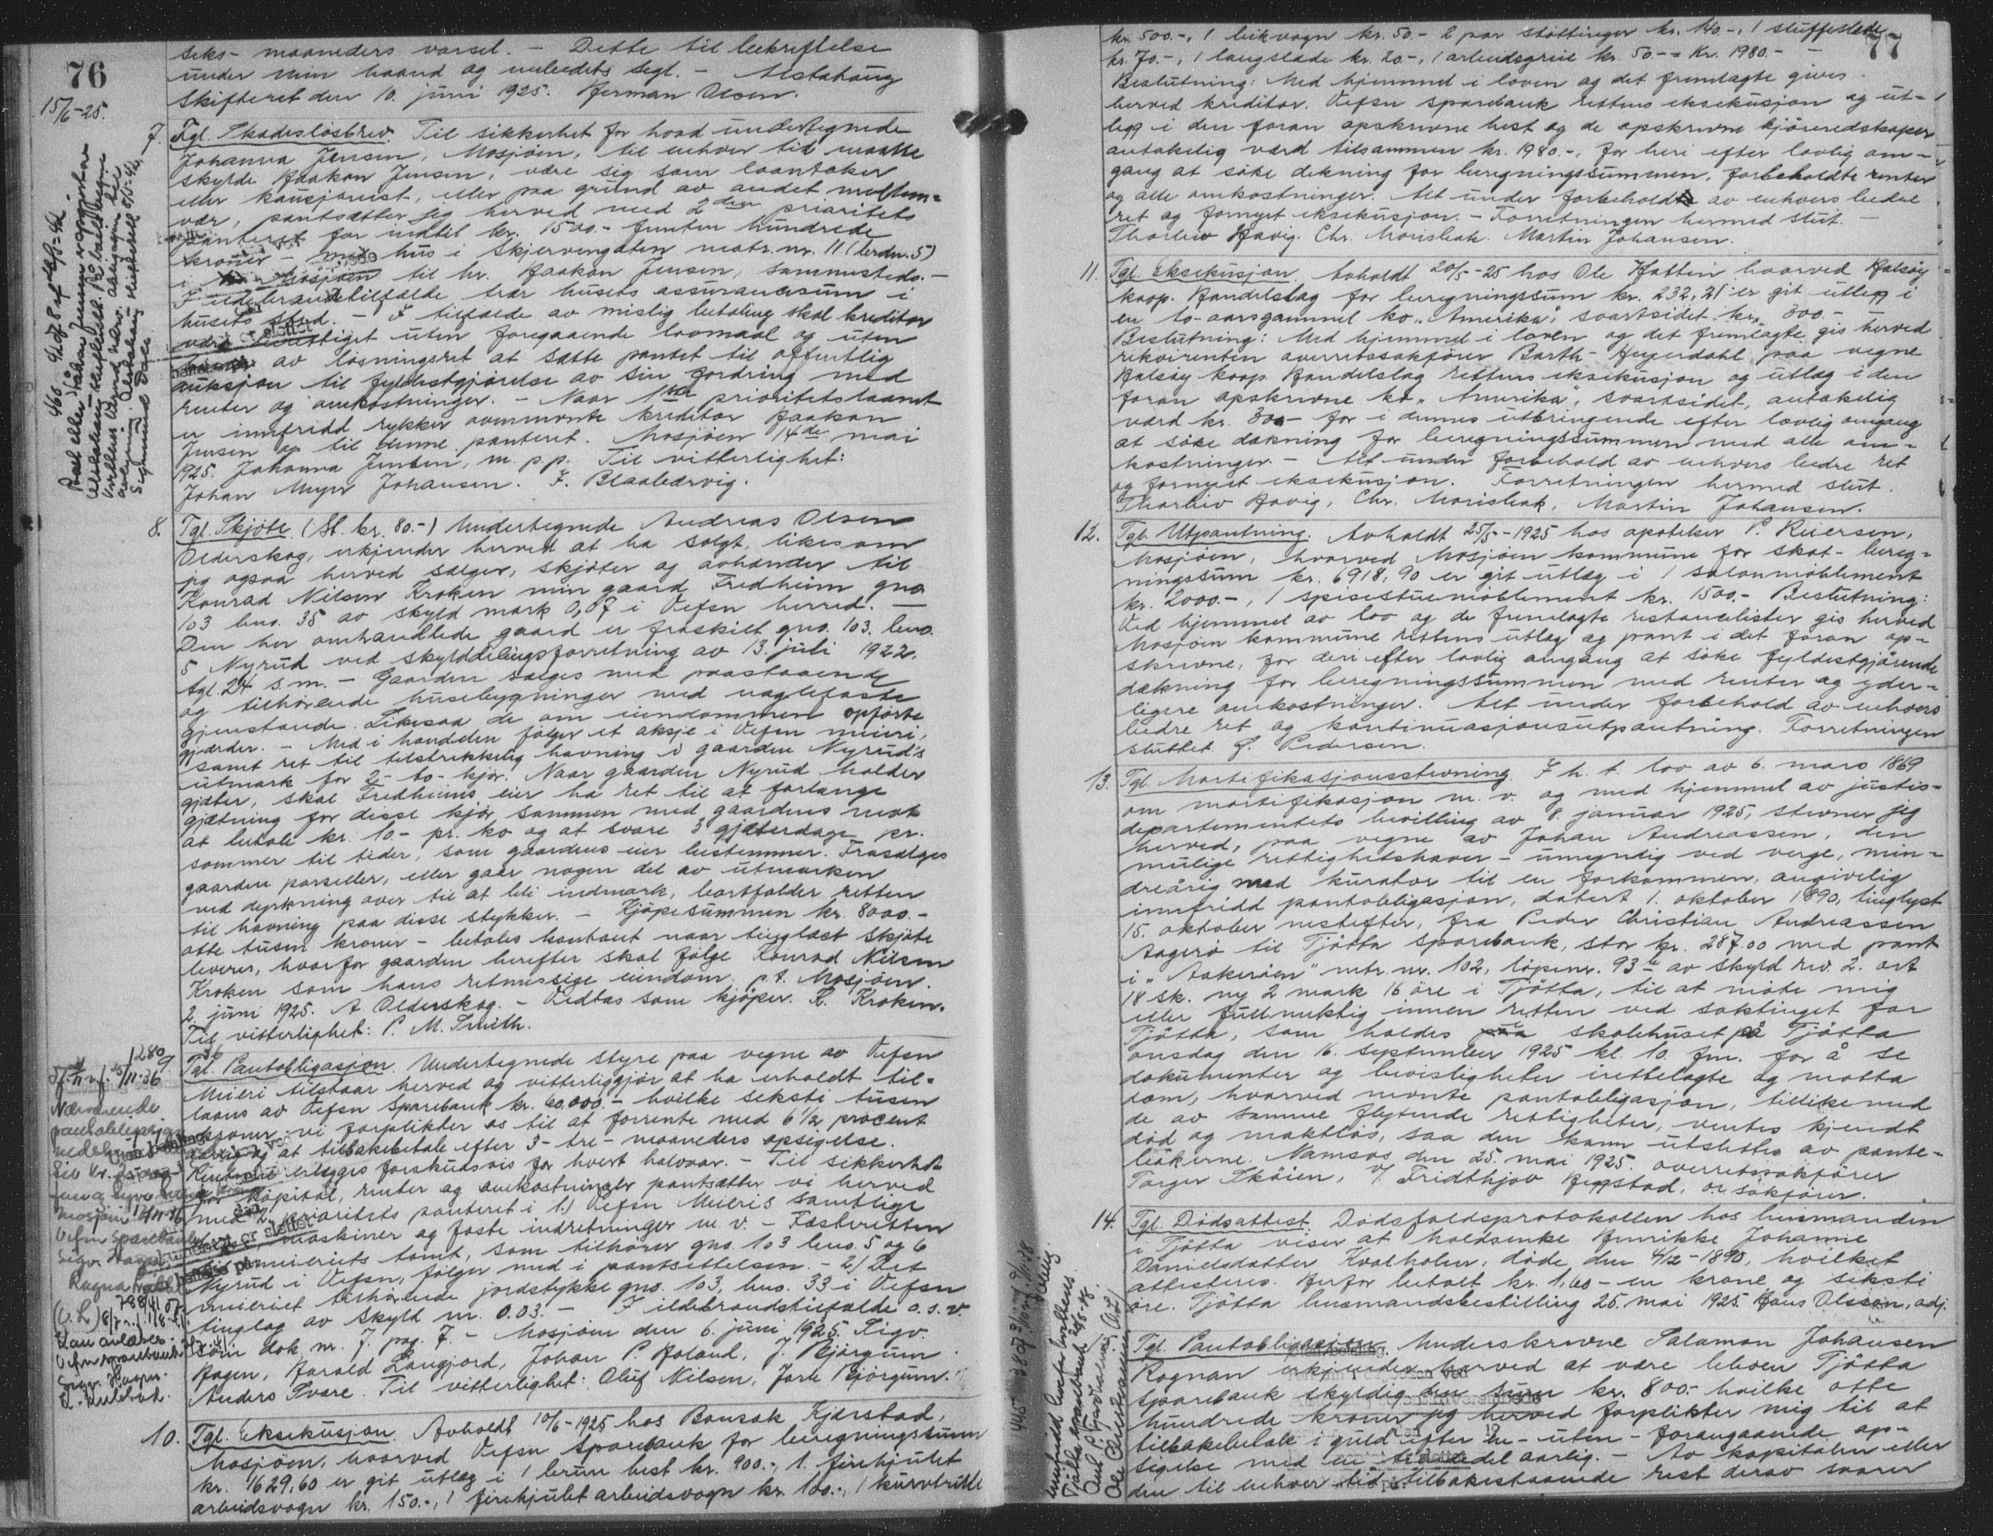 76
15/6-25.
seks- maaneders varsel. - Dette til bekreftelse
under min haand og embedets segl. - Alstahaug
skifteret den 10. juni 1925. Herman Olsen.
7. Tgl. Skadesløsbrev. Til sikkerhet for hvad undertegnede
Johanna Jensen, Mosjøen, til enhver tid maatte
skylde Haakon Jensen, være sig som laantaker
eller kausjonist, eller paa grund av andet mellem-
vær, pantsætter jeg herved med 2den prioritets
panteret for indtil kr. 1500.- femten hundrede
kroner - hus i Skjervengaten matr. nr. 11 (lerdn. 5)
i Mosjøen til hr. Haakon Jensen, sammesteds. -
I ildebrandstilfælde trær husets assurancesum i
husets sted. - I tilfælde av mislig betaling skal kreditor
være berettiget uten foregaaende lovmaal og uten
av løsningsret at sætte pantet til offentlig
auksjon til fyldestgjørelse av sin fordring med
renter og omkostninger. - Naar 1ste prioritetslaanet
er innfridd rykker ovennævnte kreditor Haakon
Jensen op til denne panteret. Mosjøen 14de mai
1925. Johanna Jensen, m. p. p. Til vitterlighet:
Johan Meyer Johansen. F. Blaabærvig.
8. Tgl. Skjøte (St. kr. 80.-) Undertegnede Andreas Olsen
Olderskog, erkjender herved at ha solgt, likesom
jeg ogsaa herved sælger, skjøter og avhænder til
Konrad Nilsen Kroken min gaard Fredheim gno
103 bno. 35 av skyld mark 0,07 i Vefsn herred. -
Den her omhandlede gaard er fraskilt gno. 103. bno.
5 Nyrud ved skylddelingsforretning av 13. juli 1922,
tgl. 24 s. m. - Gaarden sælges med paastaaende
og tilhørende husebygninger med naglefaste
gjenstande. Likesaa de om eiendommen opførte
gjærder. - Med i handelen følger et aksje i Vefsn meieri,
samt ret til tilstrekkelig havning i gaarden Nyrud's
utmark for 2- to- kjør. Naar gaarden Nyrud holder
gjæter, skal Fredheims eier ha ret til at forlange
gjætning for disse kjør sammen med gaardens mot
at betale kr. 10.- pr. ko og at svare 3 gjæterdage pr.
sommer til tider, som gaardens eier bestemmer. Frasælges
gaarden parseller, eller gaar nogen del av utmarken
ved dyrkning over til at bli indmark, bortfalder retten
til havning paa disse stykker. - Kjøpesummen kr. 8000.-
otte tusen kroner - betales kontant naar tinglæst skjøte
leveres, hvorfor gaarden herefter skal følge Konrad Nilsen
Kroken som hans retmessige eiendom. p.t. Mosjøen.
2. juni 1925. A Olderskog. - Vedtas som kjøper. K. Kroken.
Til vitterlighet: P. M. Smith.
9. Tgl. Pantobligasjon. Undertegnede styre paa vegne av Vefsn
Meieri tilstaar herved og vitterliggjør at ha erholdt til-
laans av Vefsn Sparebank kr. 60,000.- hvilke seksti tusen
kroner vi forplikter os til at forrente med 6 1/2 procent
aarlig og at tilbakebetale efter 3- tre- maaneders opsigelse.
Renterne erlægges forskudsvis for hvert halvaar. - Til sikkerhet
for kapital, renter og omkostninger pantsætter vi herved
med 1. prioritets panteret i 1.) Vefsn Meieris samtlige
maskiner og faste indretninger m. v. - Fæsteretten
til meieriets tomt, som tilhører gno. 103 bno. 5 og 6
Nyrud i Vefsn, følger med i pantsettelsen. - 2/ Det
meieriet tilhørende jordstykke gno. 103, bno. 33 i Vefsn
tinglag av skyld m. 0.03. - I ildebrandstilfælde o. s. v.
som dok. nr. 7. pag. 7. - Mosjøen den 6. juni 1925. Sigv.
Hagen, Harald Langjord, Johan P. Haland, J. Bjørgum.
Anders Svare. Til vitterlighet: Oluf Nilsen, Jarle Bjørgum.
10. Tgl. Eksekusjon. Avholdt 10/6-1925 hos Bonsak Kjærstad,
Mosjøen, hvorved Vefsn Sparebank for beregningssum
kr. 1629,60 er git utlæg i 1 brun hest kr. 900.-, 1. firehjulet
arbeidsvogn kr. 150.-, 1 firehjulet arbeidsvogn kr. 100.-, 1 kurvtrille
77
kr. 500.-, 1 leikvogn kr. 50.- 2 par støttinger kr. 140.-, 1 stuffeslede
kr. 70.-, 1 langslade kr. 20.-, 1 arbeidsgreie kr. 50.- = Kr. 1980.- -
Beslutning: Med hjemmel i loven og det fremlagte gives
herved kreditor, Vefsn sparebank rettens eksekusjon og ut-
legg i den foran opskrevne hest og de opskrevne kjøreredskaper
antakelig værd tilsammen kr. 1980.-, for heri efter lovlig om-
gang at søke dekning for beregningssummen, forbeholdte renter
og alle omkostninger. Alt under forbehold av enhvers bedre
ret og fornyet eksekusjon. - Forretningen hermed slut. -
Thorleiv Havig. Chr. Marisbak. Martin Johansen.
11. Tgl. Eksekusjon avholdt 20/5-25 hos Ole Hattin hvorved Halsøy
koop. Handelslag for beregningssum kr. 232,21 er git utlegg i
en 10-aarsgammel ko „Amerika", svartsidet kr. 300.-
Beslutning: Med hjemmel i loven og det fremlagte gis herved
rekvirenten overretssakfører Barth-Heyerdahl paa vegne
Halsøy koop. Handelslag rettens eksekusjon og utlæg i den
foran opskrevne ko „Amerika", svartsidet, antakelig
værd kr. 300.- for i dennes utbringende efter lovlig omgang
at søke dækning for beregningssummen med alle om-
kostninger. - Alt under forbehold av enhvers bedre ret
og fornyet eksekusjon. Forretningen hermed slut.
Thorleiv Havig, Chr. Marisbak, Martin Johansen.
12. Tgl. Utpantning. Avholdt 25/5-1925 hos apoteker P. Reiersen,
Mosjøen, hvorved Mosjøen kommune for skat- bereg-
ningssum kr. 6918,90 er git utlæg i 1 salonmøblement
kr. 2000.-, 1 spisestuemøblement kr. 1500.- Beslutning:
Ved hjemmel av lov og de fremlagte restancelister gis herved
Mosjøen kommune rettens utlæg og pant i det foran op-
skrevne, for deri efter lovlig omgang at søke fyldestgjørende
dækning for beregningssummen med renter og yder-
ligere omkostninger. Alt under forbehold av enhvers
bedre ret og kontinuasjonsutpantning. Forretningen
sluttet J. Pedersen.
13. Tgl. Mortifikasjonsstevning. I h. t. lov av 6. mars 1869
om mortifikasjon m. v. og med hjemmel av justis-
departementets bevilling av 8. januar 1925, stevner jeg
herved, paa vegne av Johan Andreassen, den
mulige rettighetshaver - umyndig ved verge, min-
dreårig med kurator til en forkommen, angivelig
innfridd pantobligasjon, datert 1. oktober 1890, tinglyst
15. oktober nestefter, fra Peder Christian Andreassen
Aagerø til Tjøtta sparebank, stor kr. 287.00 med pant
i „Aakerøen" mtr. nr. 102, løpenr. 93e av skyld rev. 2. ort
18 sk. ny 2 mark 16 øre i Tjøtta, til at møte mig
eller fullmektig innen retten ved saktinget for
Tjøtta, som holdes skolehuset på Tjøtta
onsdag den 16. september 1925 kl. 10. fm. for å se
dokumenter og bevisligheter irettelagte og motta
dom, hvorved nevnte pantobligasjon, tillikemed
de av samme flytende rettigheter, ventes kjendt
død og maktløs, saa den kann utslettes av pante-
bøkerne. Namsos den 25. mai 1925. overretssakfører
Torger Skøien, v/ Fridthjov Bugstad, o.r.søkfører.
14. Tgl. Dødsattest. Dødsfaldsprotokollen hos lensmanden
i Tjøtta viser at holdsenke Henrikke Johanne
Danielsdatter Kvalholm, døde den 4/12-1890, hvilket
attesteres. Herfor betalt kr. 1,60 - en krone og seksti
øre. Tjøtta lensmandsbestilling 25. mai 1925. Hans Olsson, adj.
Tgl. Pantobligasjon. Underskrevne Salamon Johansen
Rognan erkjender herved at være bleven Tjøtta
Sparebank skyldig den sum kr. 800.- hvilke otte
hundrede kroner jeg herved forplikter mig til at
tilbakebetale i guld efter en- uten- forangaaende op-
sigelse med en tiendedel aarlig. - Av kapitalen eller
den til enhver tid tilbakestaaende rest derav svarer